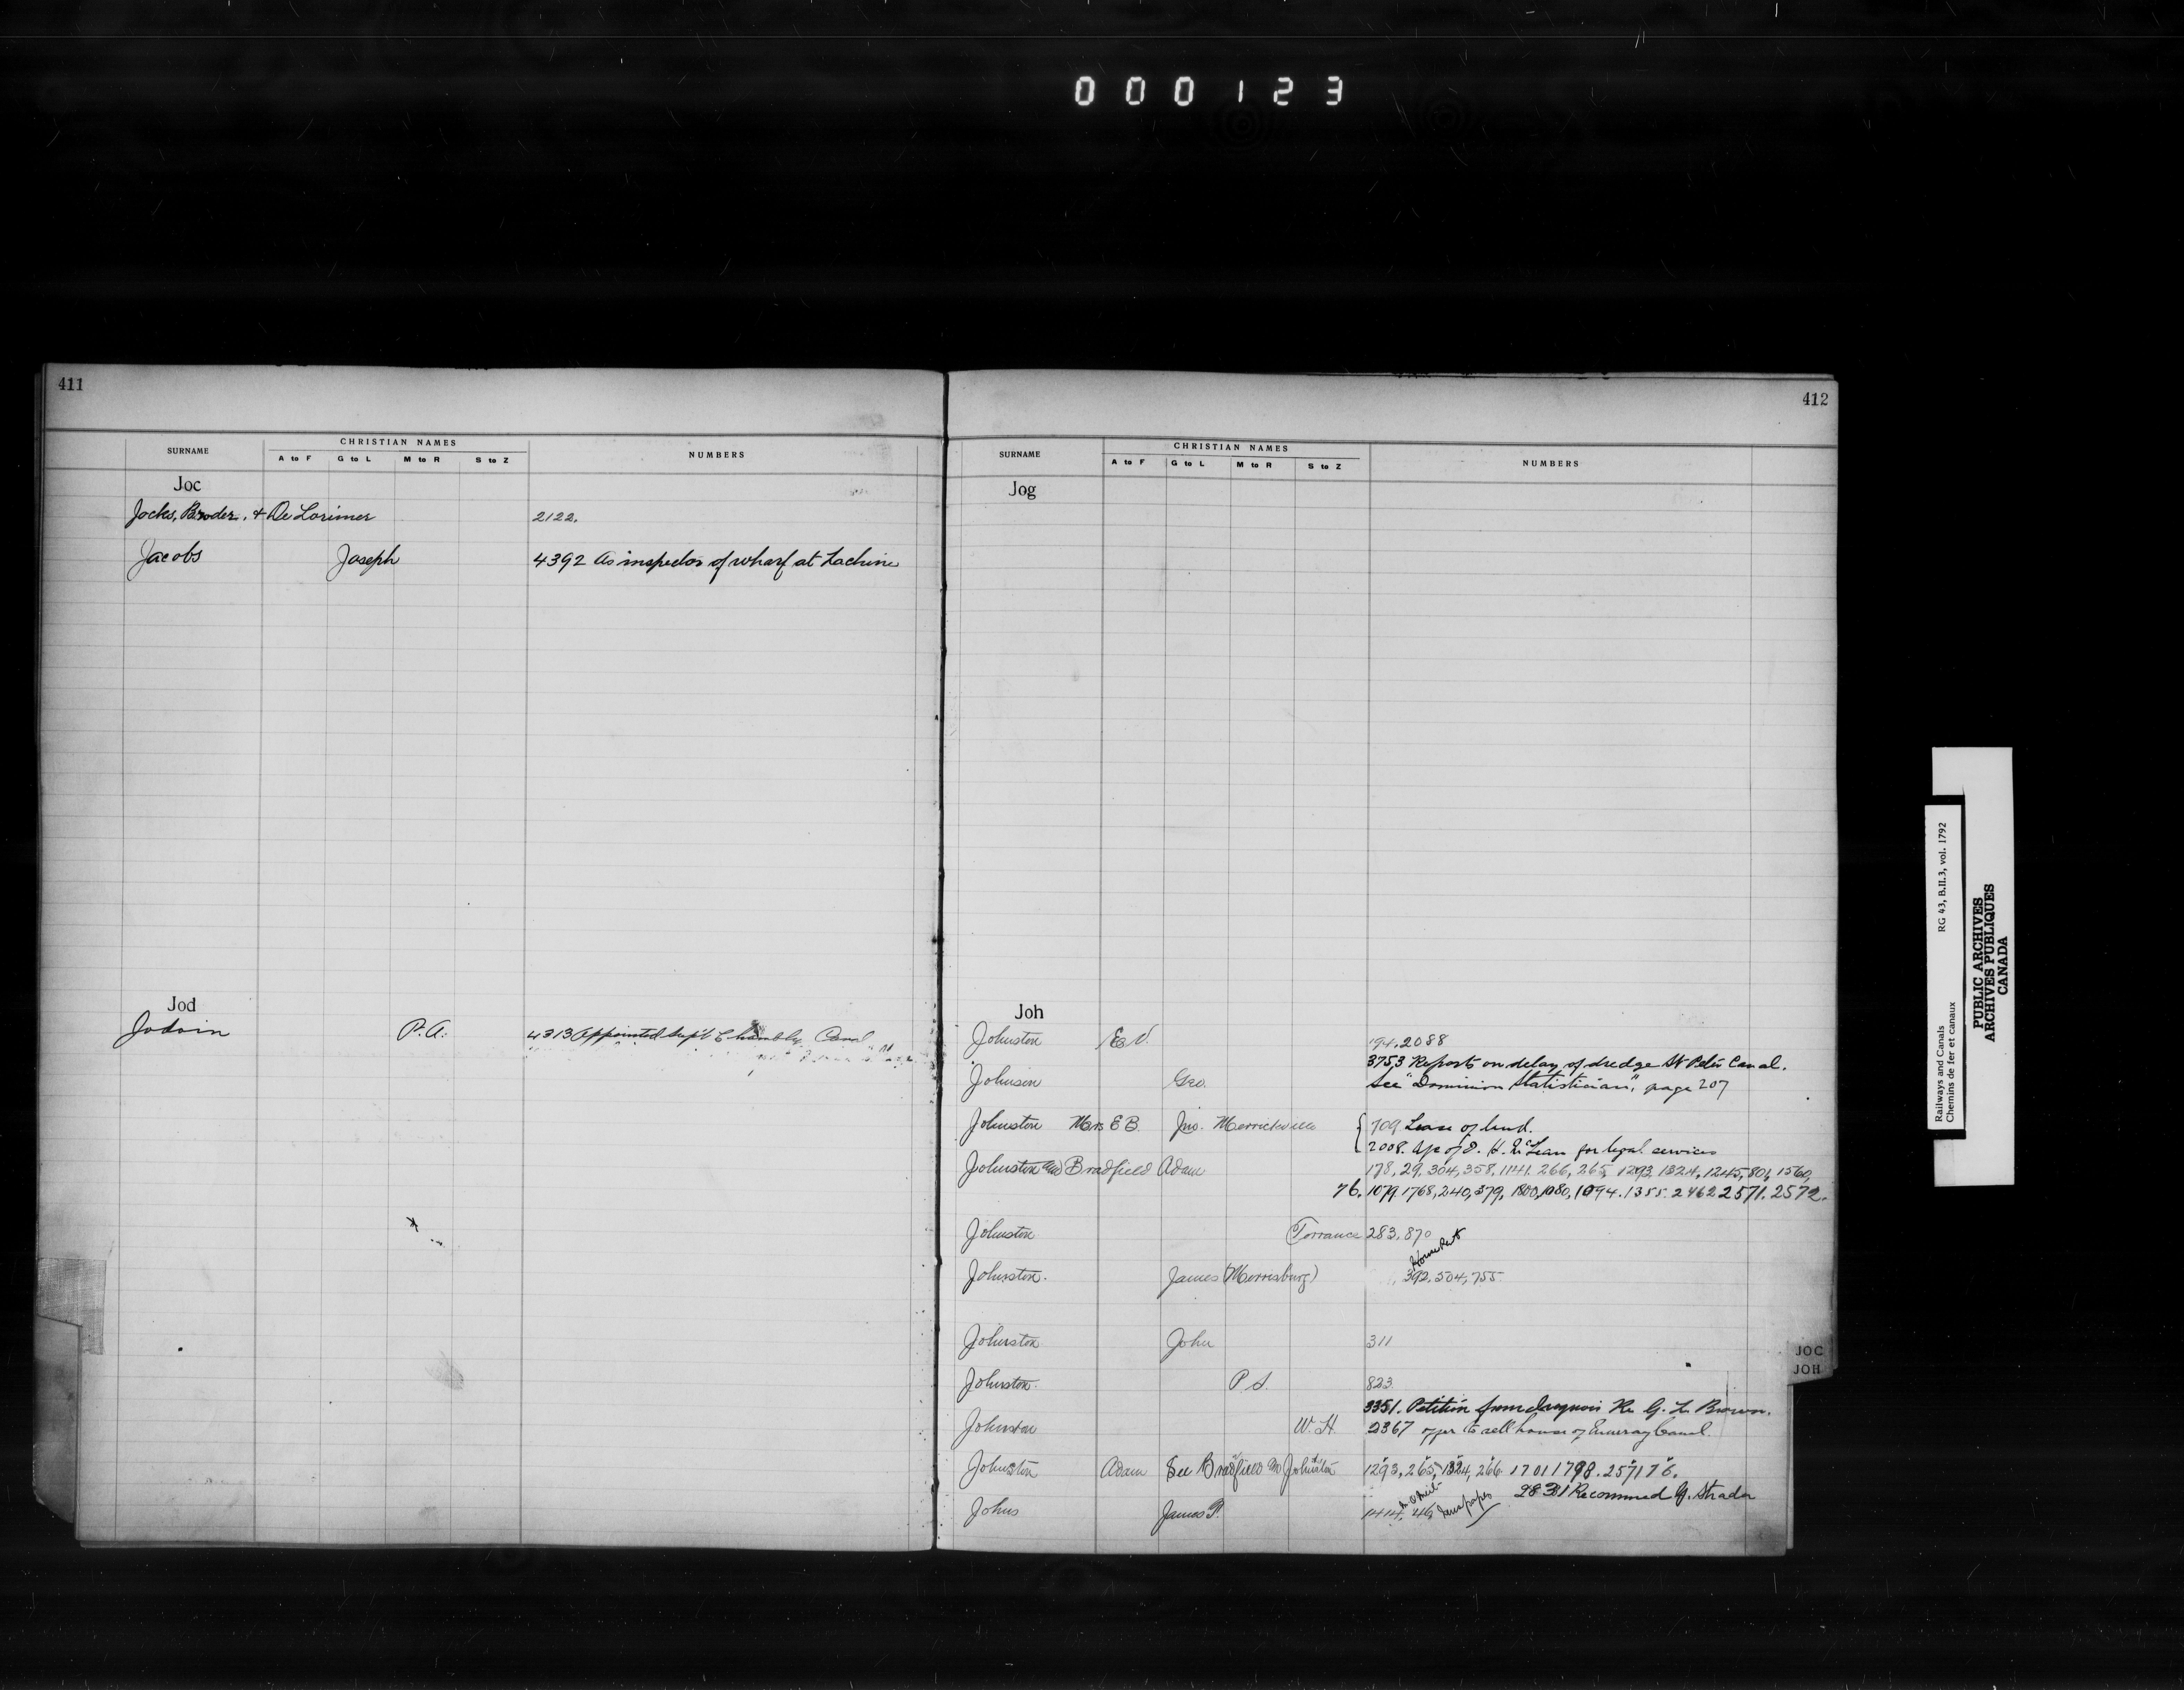 000123
411
SURNAME
CHRISTIAN NAMES
A to F G to L M to R S to Z
NUMBERS
Joc
Jocks, Broder, & De Lorimer 2122.
Jacobs Joseph 4392 As inspector of wharf at Lachine
Jod
Jodoin P. A. 4313 Appointed Supt Chambly Canal
412
SURNAME
CHRISTIAN NAMES
A to F G to L M to R S to Z
NUMBERS
Jog
Joh
Johnston E V. 194, 2088
3753 Reports on delay of dredge St Peter Canal.
Johnson Geo. See "Dominion Statistician", page 207
Johnston Mrs E B. Jno. Merrickville 709 Lease of land.
2008. of D. H. McLean for legal services
Johnston and Bradfield Adam 178, 29, 304, 358, 1141. 266, 265, 1293, 1324, 1245, 801, 1560,
76. 1079, 1768, 240, 379, 1800, 1080, 1094. 1355. 2462 2571. 2572.
Johnston Torrance 283, 870
Johnston. James (Morrisburg) 392, 504, 755.
Johnston John 311
Johnston. P. S. 823.
3351. Petition from Iroquois Re G. L. Brown.
Johnston W. H. 2367 offer to sell house of Murray Canal.
Johnston Adam See Bradfield and Johnston 1293, 265, 1324, 266. 1701 1798. 2571 76.
2831 Recommend G. Strader
Johns James P. 1414, 46
JOC
JOH
Railways and Canals RG 43, B.II.3, vol. 1792
Chemins de fer et canaux
PUBLIC ARCHIVES
ARCHIVES PUBLIQUES
CANADA